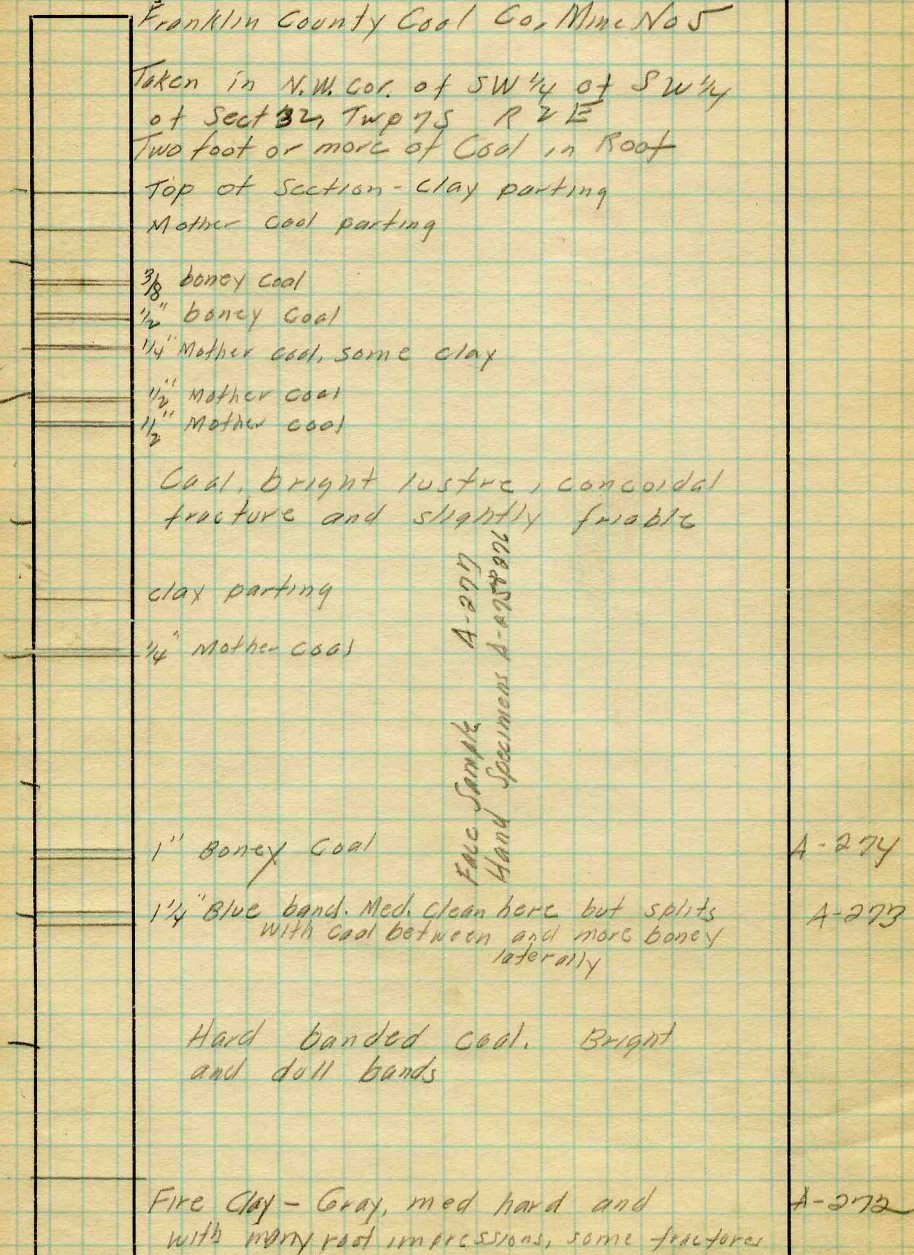 Franklin County Coal Co, Mine No 5
Taken in N.W. Cor. of SW 1/4 of SW 1/4
of Sect 32, Twp 7S R 2 E
Two foot or more of Coal in Roof
Top of Section - Clay parting
Mother Coal parting
3/8 boney coal
1/2" boney Coal
1/4" Mother coal, some clay
1/2" Mother coal
1/2" Mother coal
Coal, bright lustre, concoidal
fracture and slightly friable
clay parting
1/4" Mother coal
Face Sample A-277
Hand Specimens A-275 & 276
1" Boney Coal A-274
1 1/4" Blue band. Med. Clean here but splits A-273
with coal between and more boney
laterally
Hard banded coal. Bright
and dull bands
Fire Clay - Gray, med hard and A-272
with many root impressions, some fractures